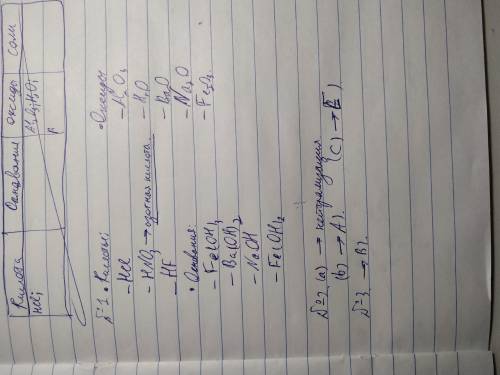 Кислота Основание оксиды соли
HCl; Al₂O₃; H₂O;
№1. • Кислоты:
- HCl
- HNO₃ → азотная кислота.
- HF
• Основания:
- Fe(OH)₃
- Ba(OH)₂
- NaOH
- Fe(OH)₂
• Оксиды
- Al₂O₃
- H₂O
- BaO
- Na₂O
- Fe₂O₃
№2. (a) → нейтрализация
(b) → A). (C) → E)
№3. → B).